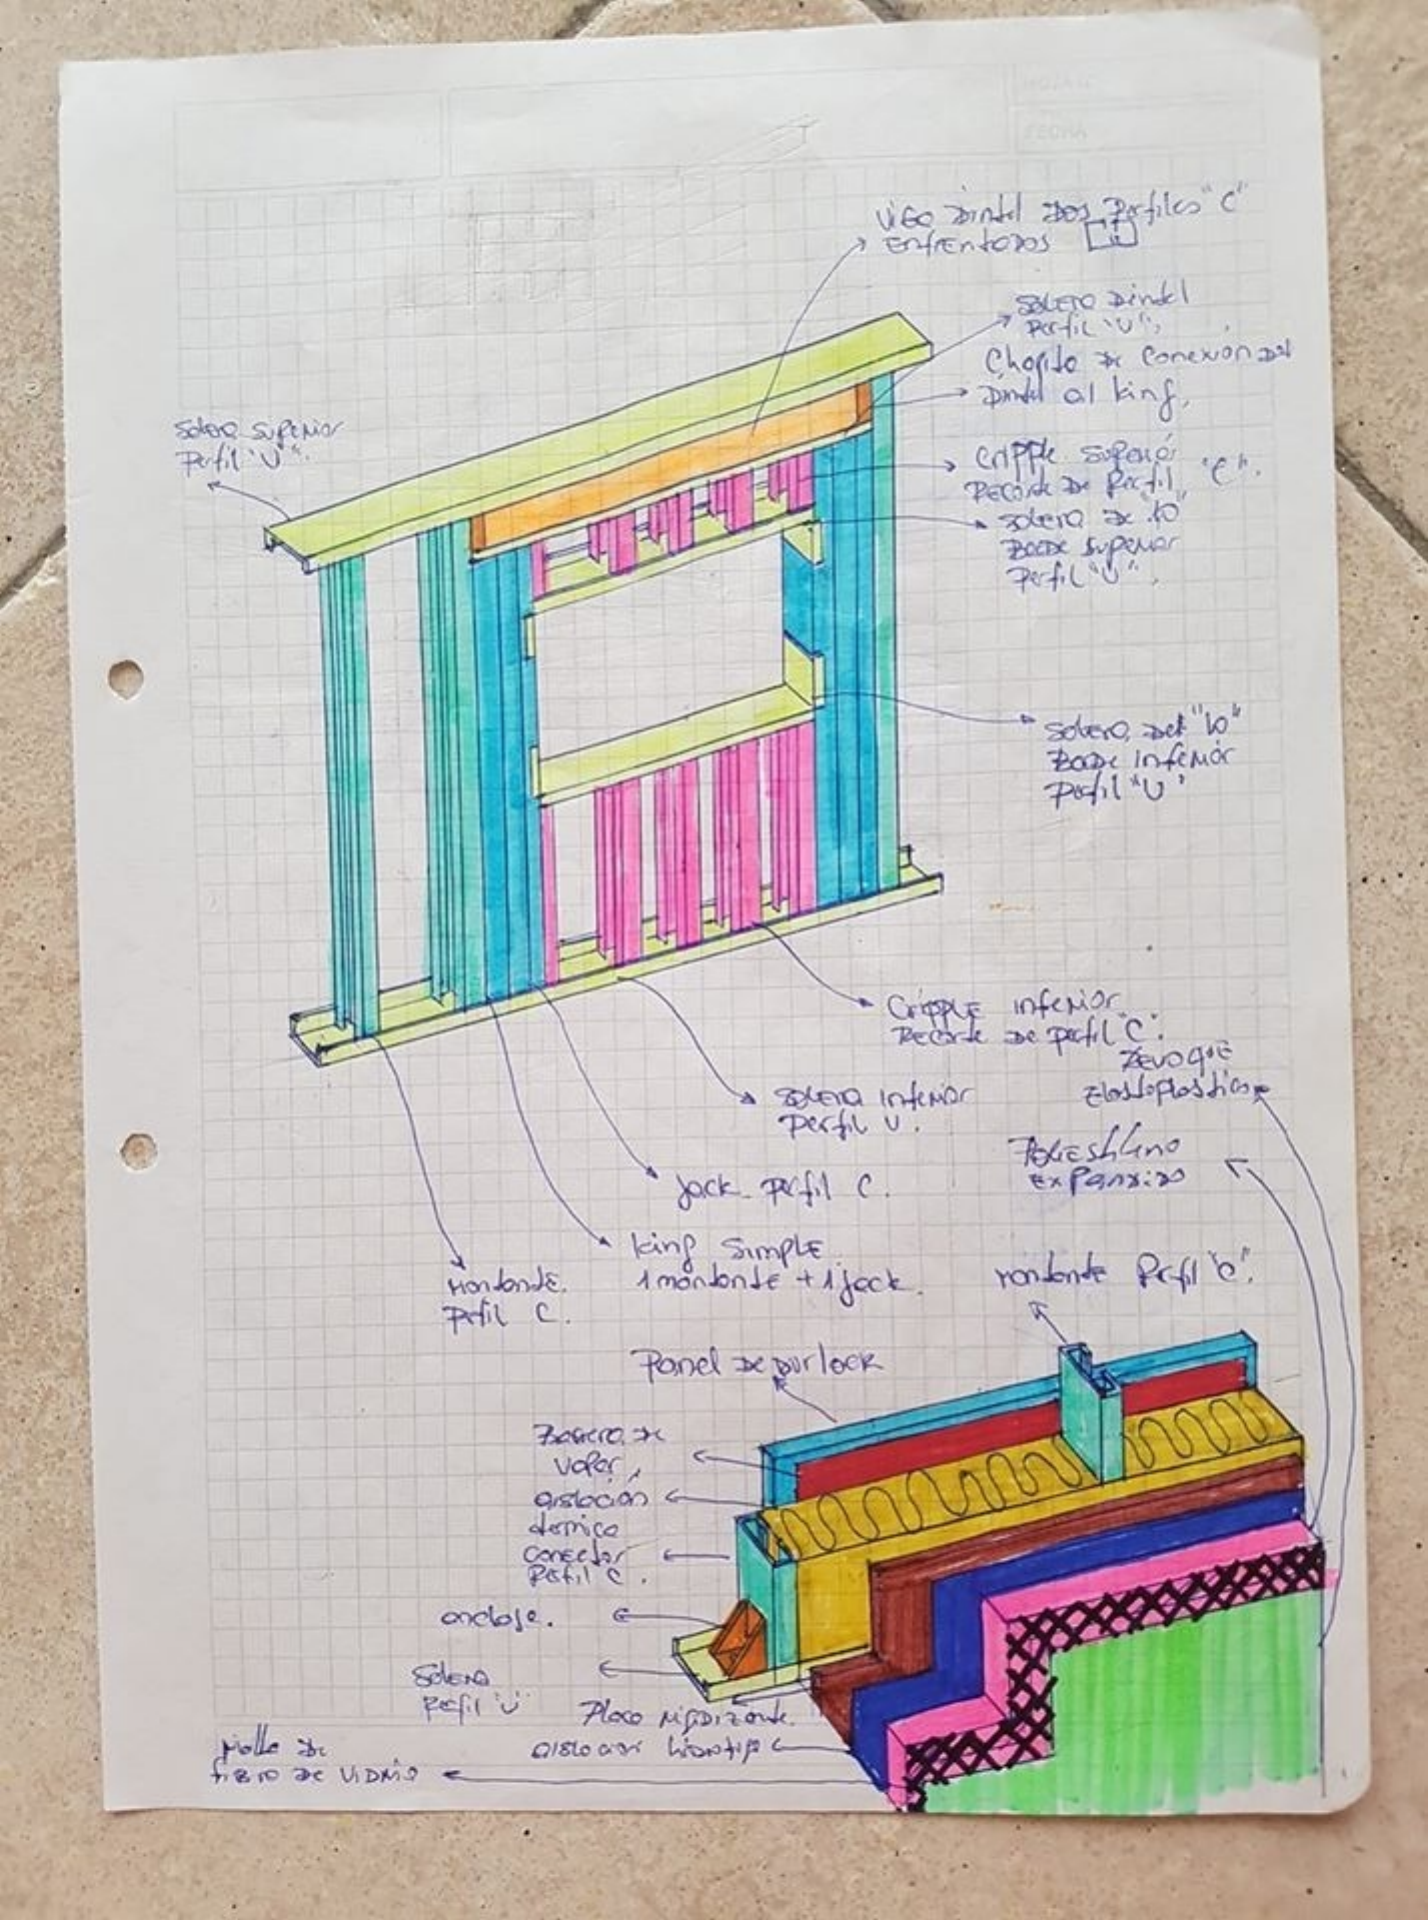 FECHA
VIGA Dintel DOS Perfiles "C"
ENFRENTADOS
SOLERA Dintel
Perfil "U",
Chapita de Conexión del
Dintel al king,
Solera Superior
Perfil "U".
Cripple Superior
Recorte De Perfil "C".
Solera De
Borde Superior
Perfil "U".
Solera Del
Borde inferior
Perfil "U"
Cripple inferior
Recorte De perfil "C".
Revoque
Elastoplastico
Solera inferior
Perfil U.
Poliestireno
Expandido
jack Perfil C.
king Simple
1 montante + 1 jack.
Montante
Perfil C.
Montante Perfil "C".
Panel De Durlock
Barrera De
vapor,
aislación
termica
Conector
Perfil C.
anclaje.
Solera
Perfil "U"
Placa rigidizante.
aislación
Malla De
fibra De VIDRIO